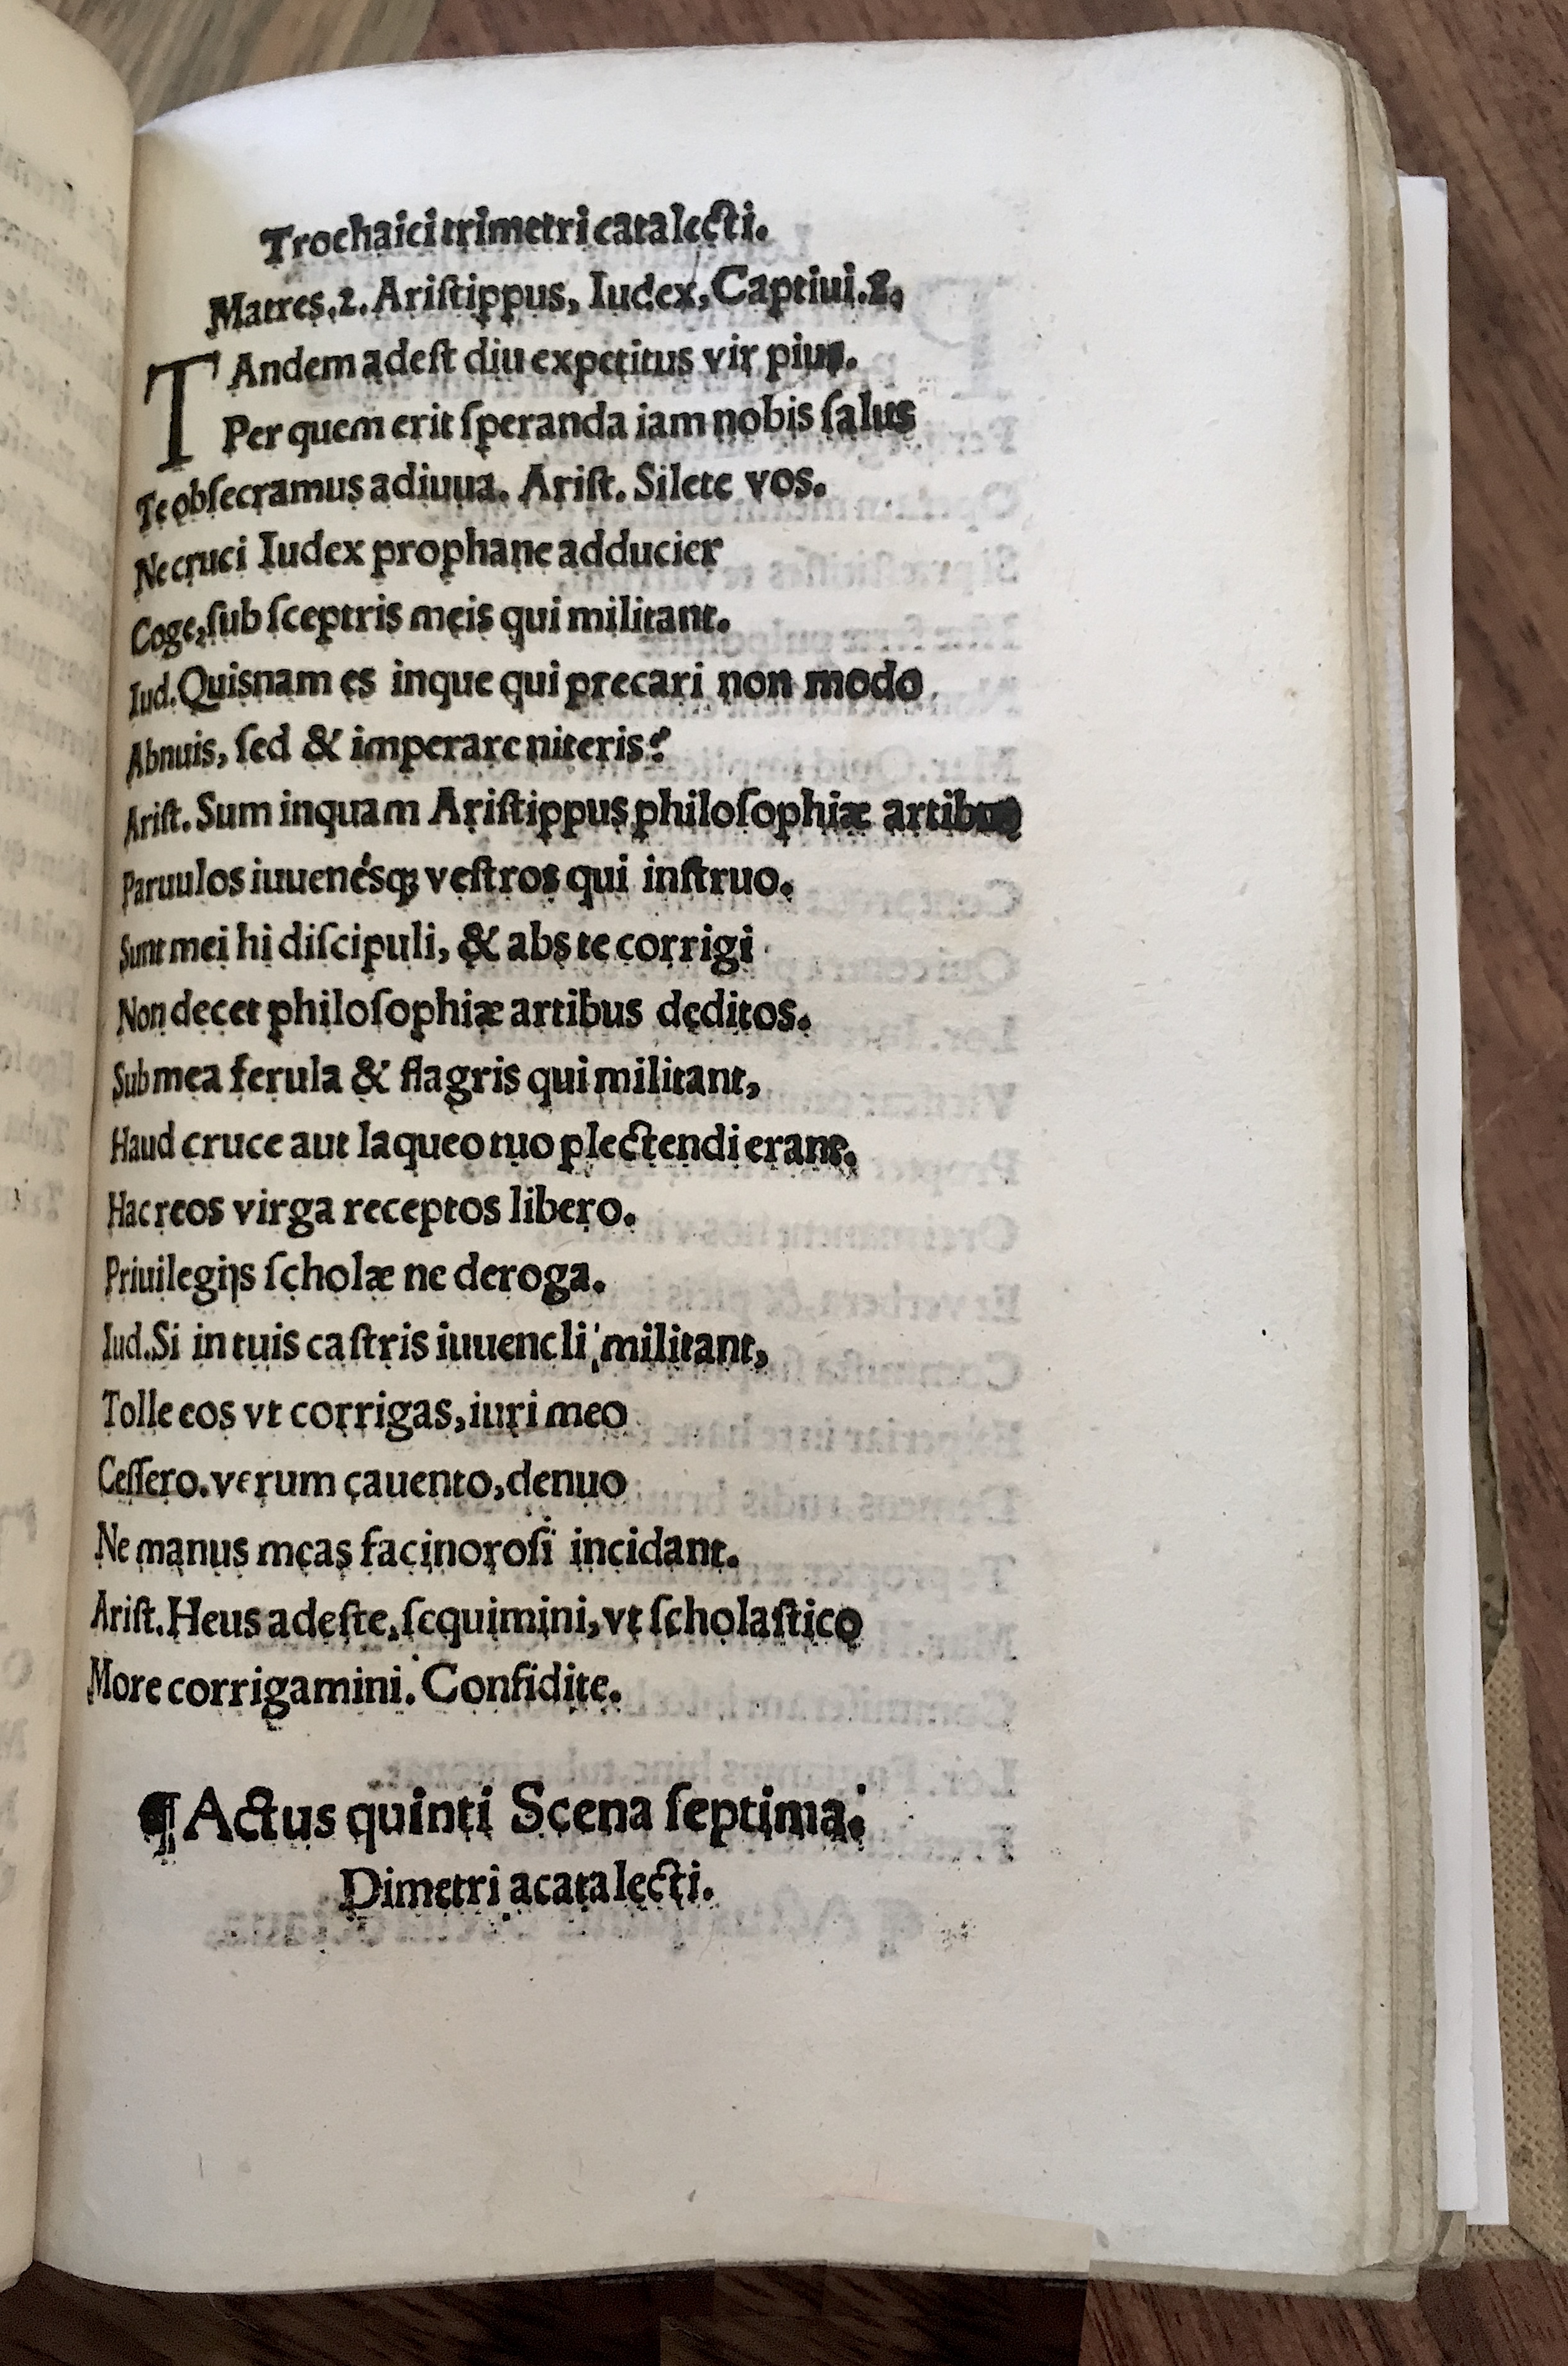 Trochaici trimetri catalecti.
Matres.2. Ariſtippus, Iudex, Captiui.2,
TAndem adeſt diu expetitus vir pius.
Per quem erit ſperanda iam nobis ſalus
Te obſecramus adiuua. Ariſt. Silete vos.
Ne cruci Iudex prophane adducier
Coge, ſub ſceptris meis qui militant.
Iud. Quisnam es inque qui precari non modo
Abnuis, ſed & imperare niteris?
Ariſt. Sum inquam Ariſtippus philoſophiæ artibus
Paruulos iuuenésqꝫ veſtros qui inſtruo.
Sunt mei hi diſcipuli, & abs te corrigi
Non decet philoſophiæ artibus deditos.
Sub mea ferula & flagris qui militant,
Haud cruce aut laqueo tuo plectendi erant.
Hac reos virga receptos libero.
Priuilegijs ſcholæ ne deroga.
Iud. Si in tuis caſtris iuuencli militant,
Tolle eos vt corrigas, iuri meo
Ceſſero. verum cauento, denuo
Ne manus meas facinoroſi incidant.
Ariſt. Heus adeſte, ſequimini, vt ſcholaſtico
More corrigamini. Confidite.
¶ Actus quinti Scena ſeptima.
Dimetri acatalecti.